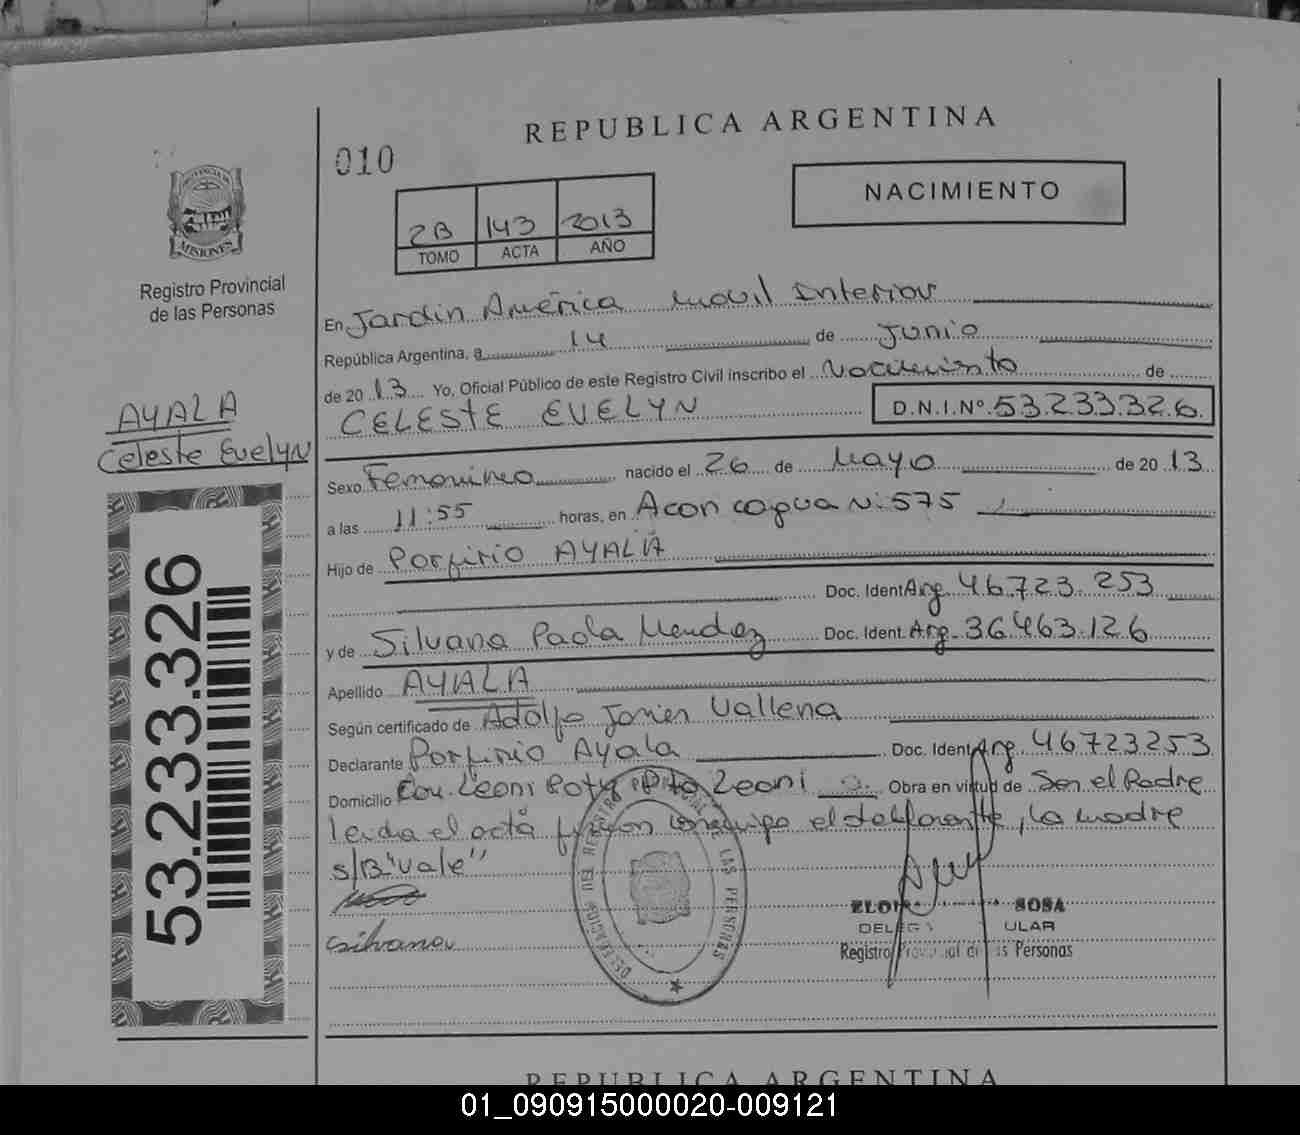 REPUBLICA ARGENTINA
010
NACIMIENTO
2B 143 2013
TOMO ACTA AÑO
PROVINCIA DE MISIONES
Registro Provincial
de las Personas
AYALA
Celeste Evelyn
53.233.326
En Jardin América Movil Interior
República Argentina, a 14 de Junio
de 20 13 Yo, Oficial Público de este Registro Civil inscribo el Nacimiento de
CELESTE EVELYN D.N.I.Nº 53.233.326.
Sexo Femenino nacido el 26 de Mayo de 20 13
a las 11:55 horas, en Aconcagua N: 575
Hijo de Porfirio AYALA
Doc. Ident. Arg. 46.723.253
y de Silvana Paola Mendez Doc. Ident. Arg. 36.463.126
Apellido AYALA
Según certificado de Adolfo Javier Vallena
Declarante Porfirio Ayala Doc. Ident. Arg. 46723253
Domicilio Col. Leoni Poty Pto Leoni Obra en virtud de Ser el Padre
leida el acta firman el declarante, la madre
s/B "vale"
Silvana
SOSA
ULAR
Registro Provincial de las Personas
DELEGACION DEL REGISTRO PROVINCIAL DE LAS PERSONAS
REPUBLICA ARGENTINA
01_090915000020-009121